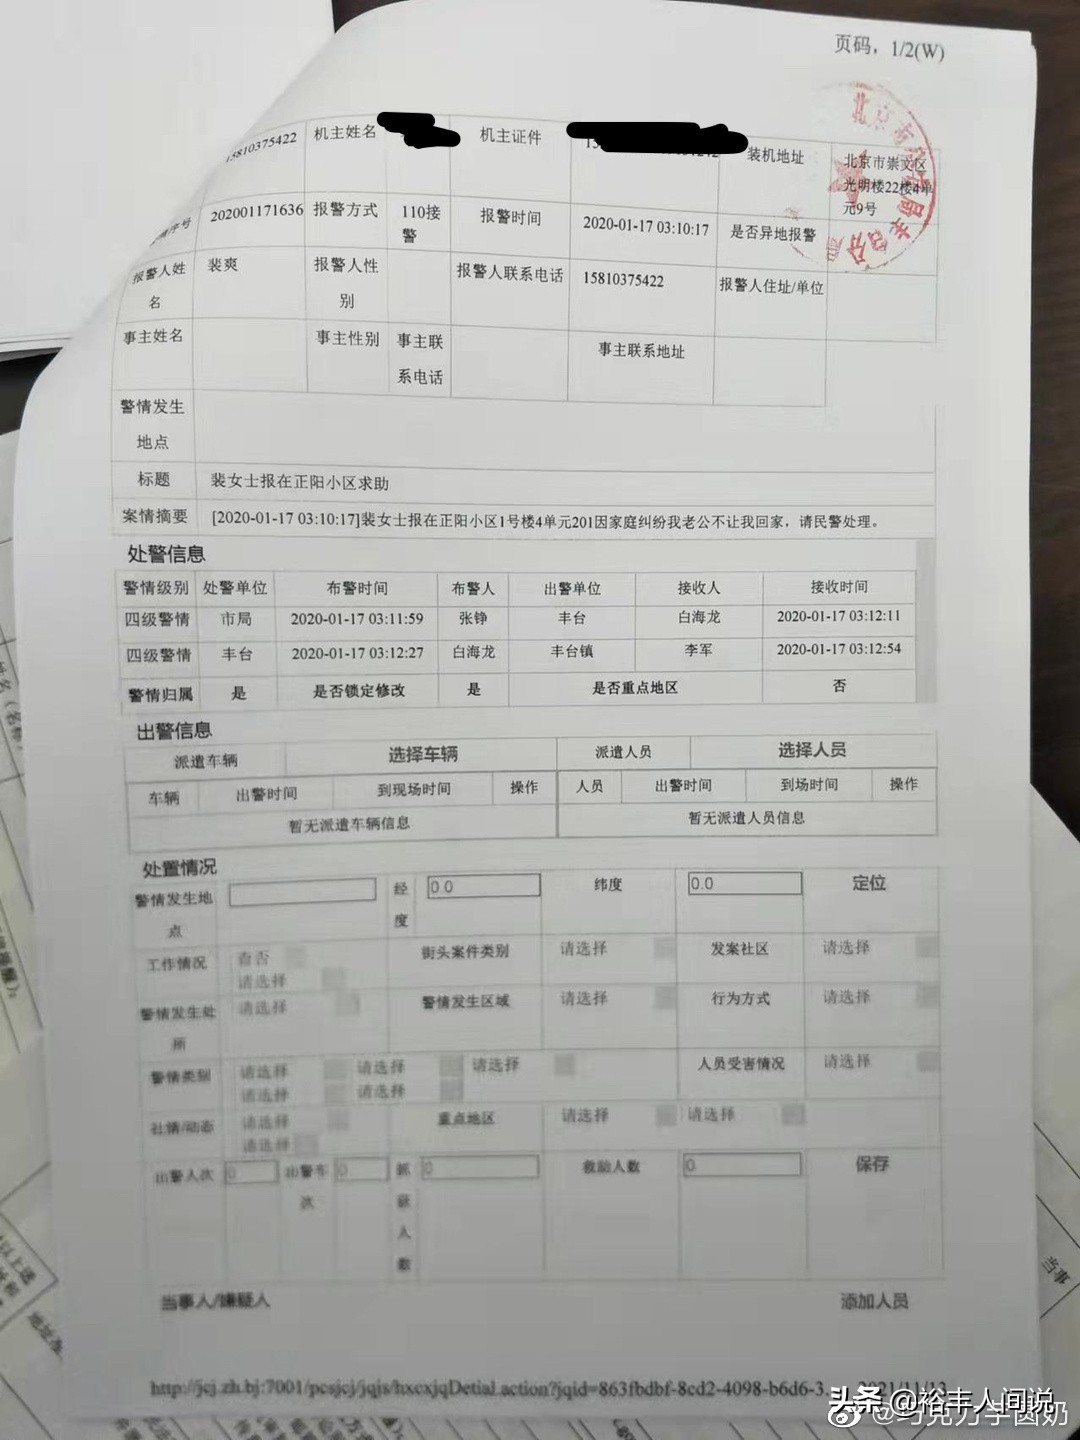 页码，1/2(W)
15810375422 机主姓名 机主证件 装机地址 北京市崇文区
光明楼22楼4单
元9号
序号 202001171636 报警方式 110接
警 报警时间 2020-01-17 03:10:17 是否异地报警
报警人姓
名 裴爽 报警人性
别 报警人联系电话 15810375422 报警人住址/单位
事主姓名 事主性别 事主联
系电话 事主联系地址
警情发生
地点
标题 裴女士报在正阳小区求助
案情摘要 [2020-01-17 03:10:17]裴女士报在正阳小区1号楼4单元201因家庭纠纷我老公不让我回家，请民警处理。
处警信息
警情级别 处警单位 布警时间 布警人 出警单位 接收人 接收时间
四级警情 市局 2020-01-17 03:11:59 张铮 丰台 白海龙 2020-01-17 03:12:11
四级警情 丰台 2020-01-17 03:12:27 白海龙 丰台镇 李军 2020-01-17 03:12:54
警情归属 是 是否锁定修改 是 是否重点地区 否
出警信息
派遣车辆 选择车辆 派遣人员 选择人员
车辆 出警时间 到现场时间 操作 人员 出警时间 到场时间 操作
暂无派遣车辆信息 暂无派遣人员信息
处置情况
警情发生地
点 经
度 0.0 纬度 0.0 定位
工作情况 否
请选择 街头案件类别 请选择 发案社区 请选择
警情发生处
所 请选择 警情发生区域 请选择 行为方式 请选择
警情类别 请选择 请选择 请选择
请选择 请选择 人员受害情况 请选择
社情/动态 请选择
请选择 重点地区 请选择 请选择
出警人次 0 出警车
次 0 抓
获
人
数 0 救助人数 0 保存
当事人/嫌疑人 添加人员
http://jcj.zh.bj:7001/pcsjcj/jqjs/hxcxjqDetial.action?jqid=863fbdbf-8cd2-4098-b6d6-3... 2021/11/13
头条 @裕丰人间说
@巧克力芋圆奶